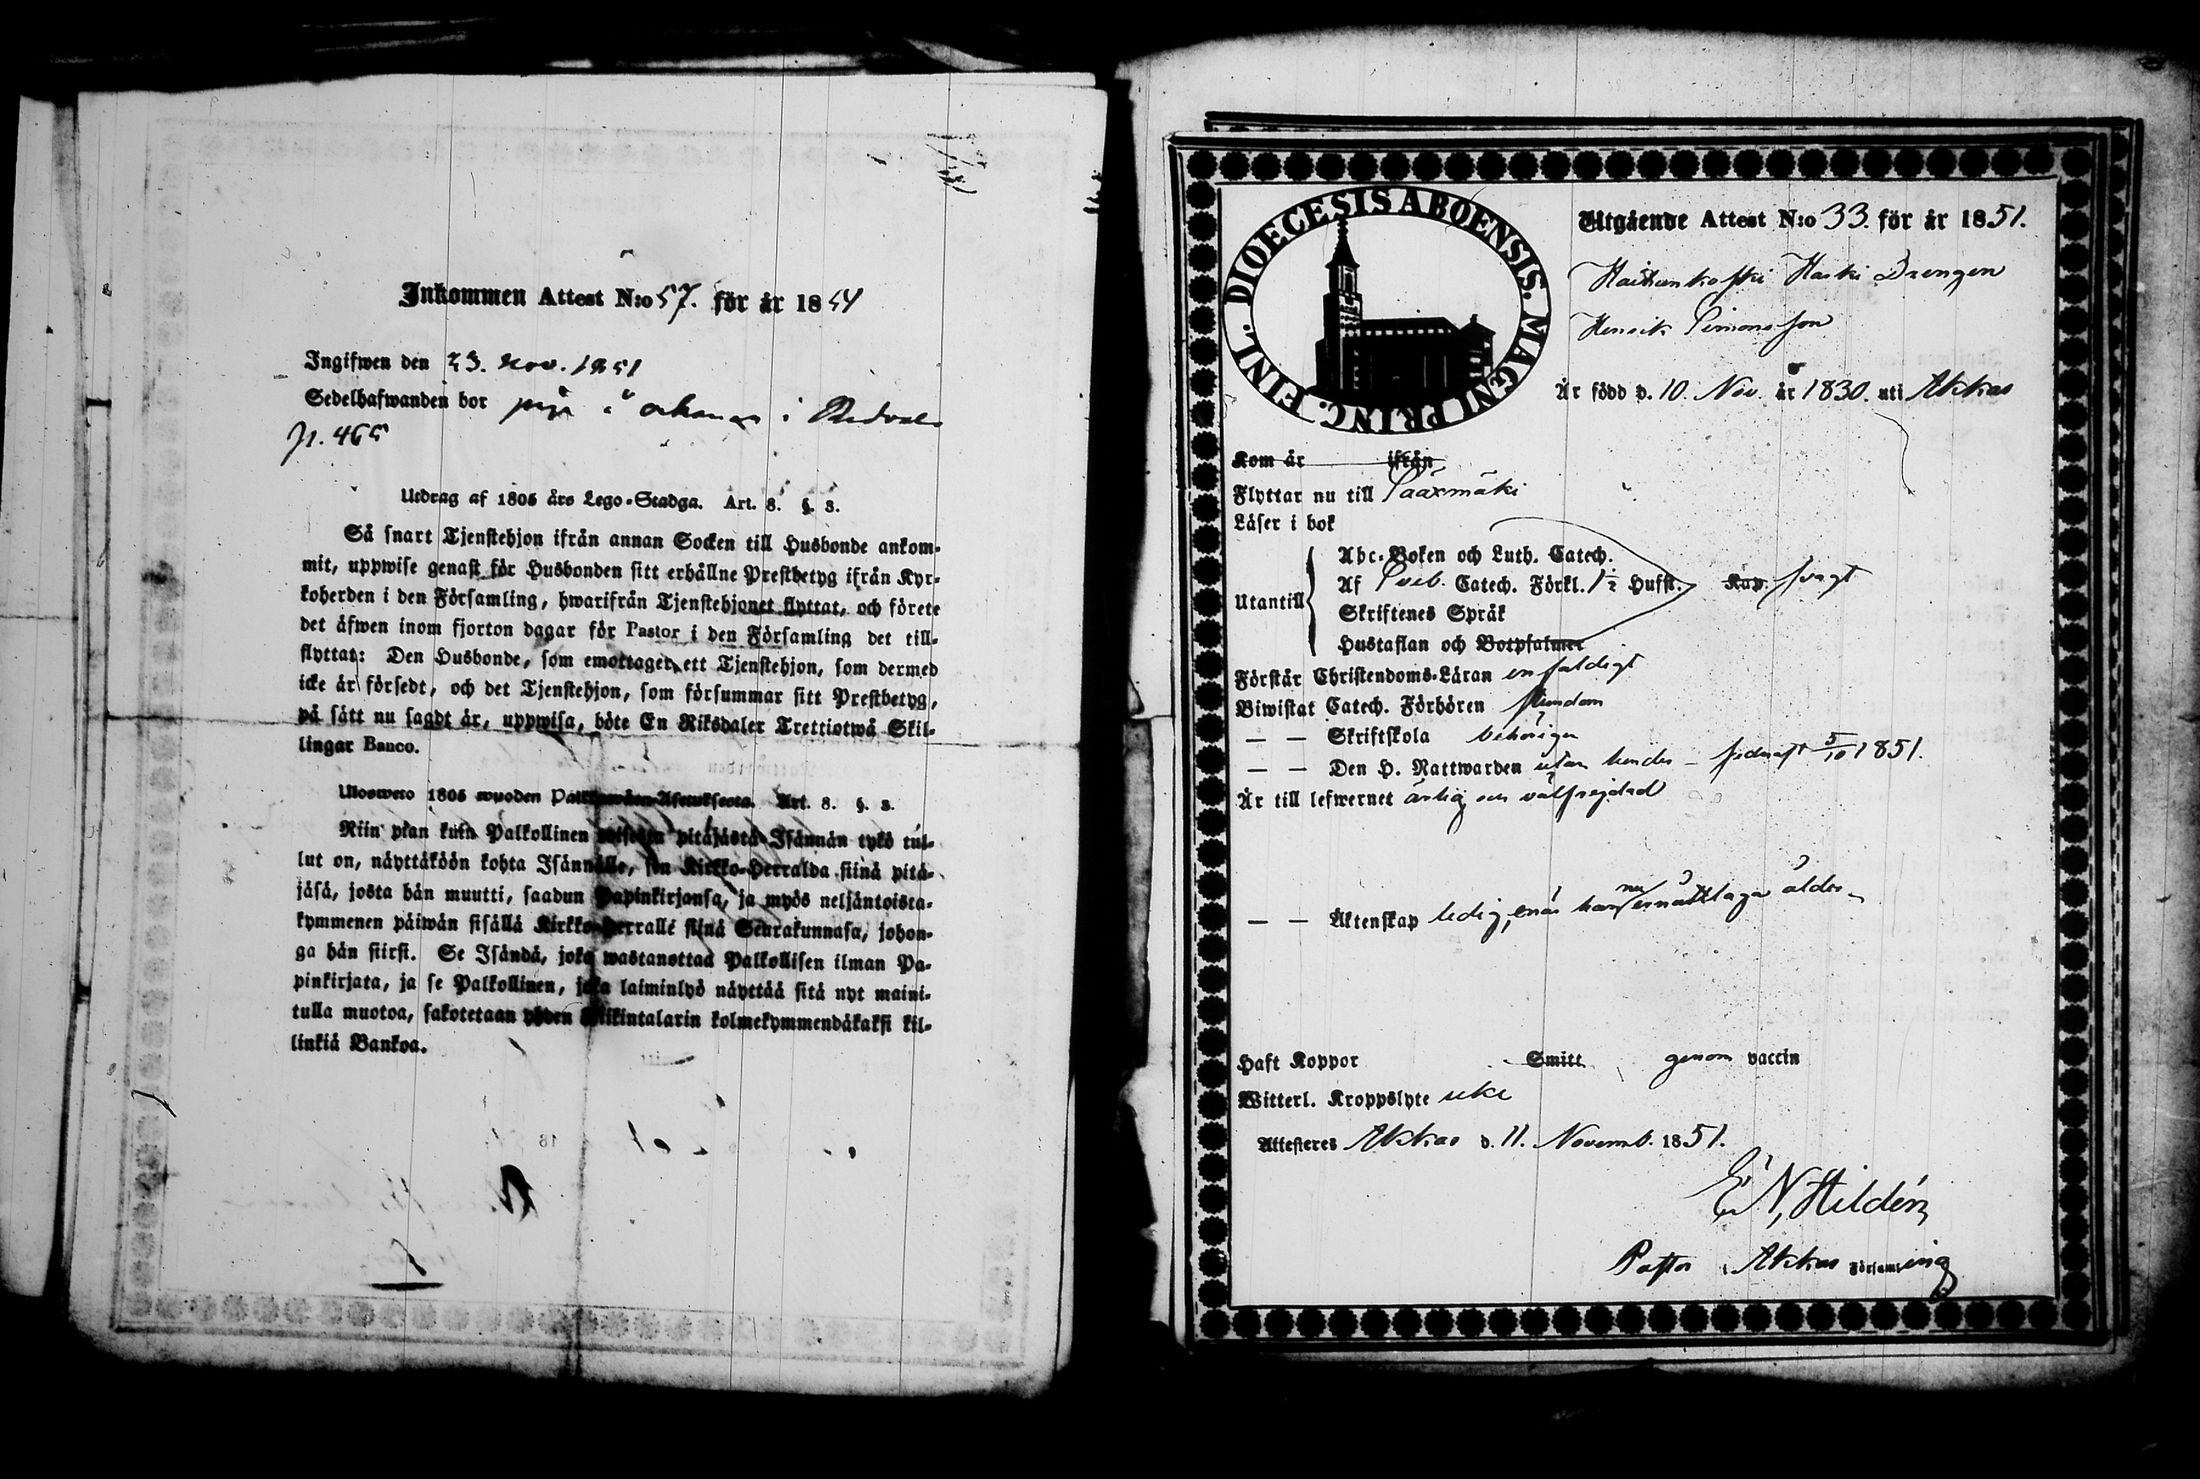 Inkommen Attest N:o 57. för år 1851
Ingifwen den 23. Nov. 1851
Sedelhafwanden bor piga i
p. 465
Utdrag af 1805 års Lego-Stadga. Art. 8. §. 3.
Så snart Tjenstehjon ifrån annan Socken till Husbonde ankom-
mit, uppwise genast för Husbonden sitt erhållne Prestbetyg ifrån Kyr-
koherden i den Församling, hwarifrån Tjenstehjonet flyttat, och förete
det äfwen inom fjorton dagar för Pastor i den Församling det till-
flyttat: Den Husbonde, som emottager ett Tjenstehjon, som dermed
icke är försedt, och det Tjenstehjon, som försummar sitt Prestbetyg,
på sätt nu sagdt är, uppwisa, böte En Riksdaler Trettiotwå Skil-
lingar Banco.
Ulosweto 1805 wuoden Palkowäen-Asetuksesta. Art. 8. §. 3.
Niin pian kuin Palkollinen toisesta pitäjästä Isännän tykö tul-
lut on, näyttäköön kohta Isännälle, sen Kirkko-Herralda siinä pitä-
jäsä, josta hän muutti, saadun Papinkirjansa, ja myös neljäntoista-
kymmenen päiwän sisällä Kirkko-Herralle siinä Seurakunnasa, johon-
ga hän siirsi. Se Isändä, joka wastanottaa Palkollisen ilman Pa-
pinkirjata, ja se Palkollinen, joka laiminlyö näyttää sitä nyt maini-
tulla muotoa, sakotetaan yhden Rikintalarin kolmekymmendäkaksi kil-
linkiä Bankoa.
DIOECESIS ABOENSIS. MAGNI PRINC. FINL.
Utgående Attest N:o 33. för år 1851.
Drengen
Henrik Simonsson
Är född d. 10. Nov. år 1830. uti Akkas
Kom år ifrån
Flyttar nu till Sääxmäki
Läser i bok
Utantill
Abc-Boken och Luth. Catech.
Af Sveb. Catech. Förkl. 1½ Hufst. Kap. svagt
Skriftenes Språk
Hustaflan och Botpsalmer
Förstår Christendoms-Läran enfaldigt
Biwistat Catech. Förhören stundom
— — Skriftskola behörigen
— — Den H. Nattwarden utan hinder – sednast 5/10 1851.
Är till lefwernet ärlig och välfrejdad
— — Äktenskap ledig, ålder
Haft Koppor Smitt genom vaccin
Witterl. Kroppslyte icke
Attesteres Akkas d. 11. Novemb. 1851.
E N Hildén
Pastor i Akkas Församling